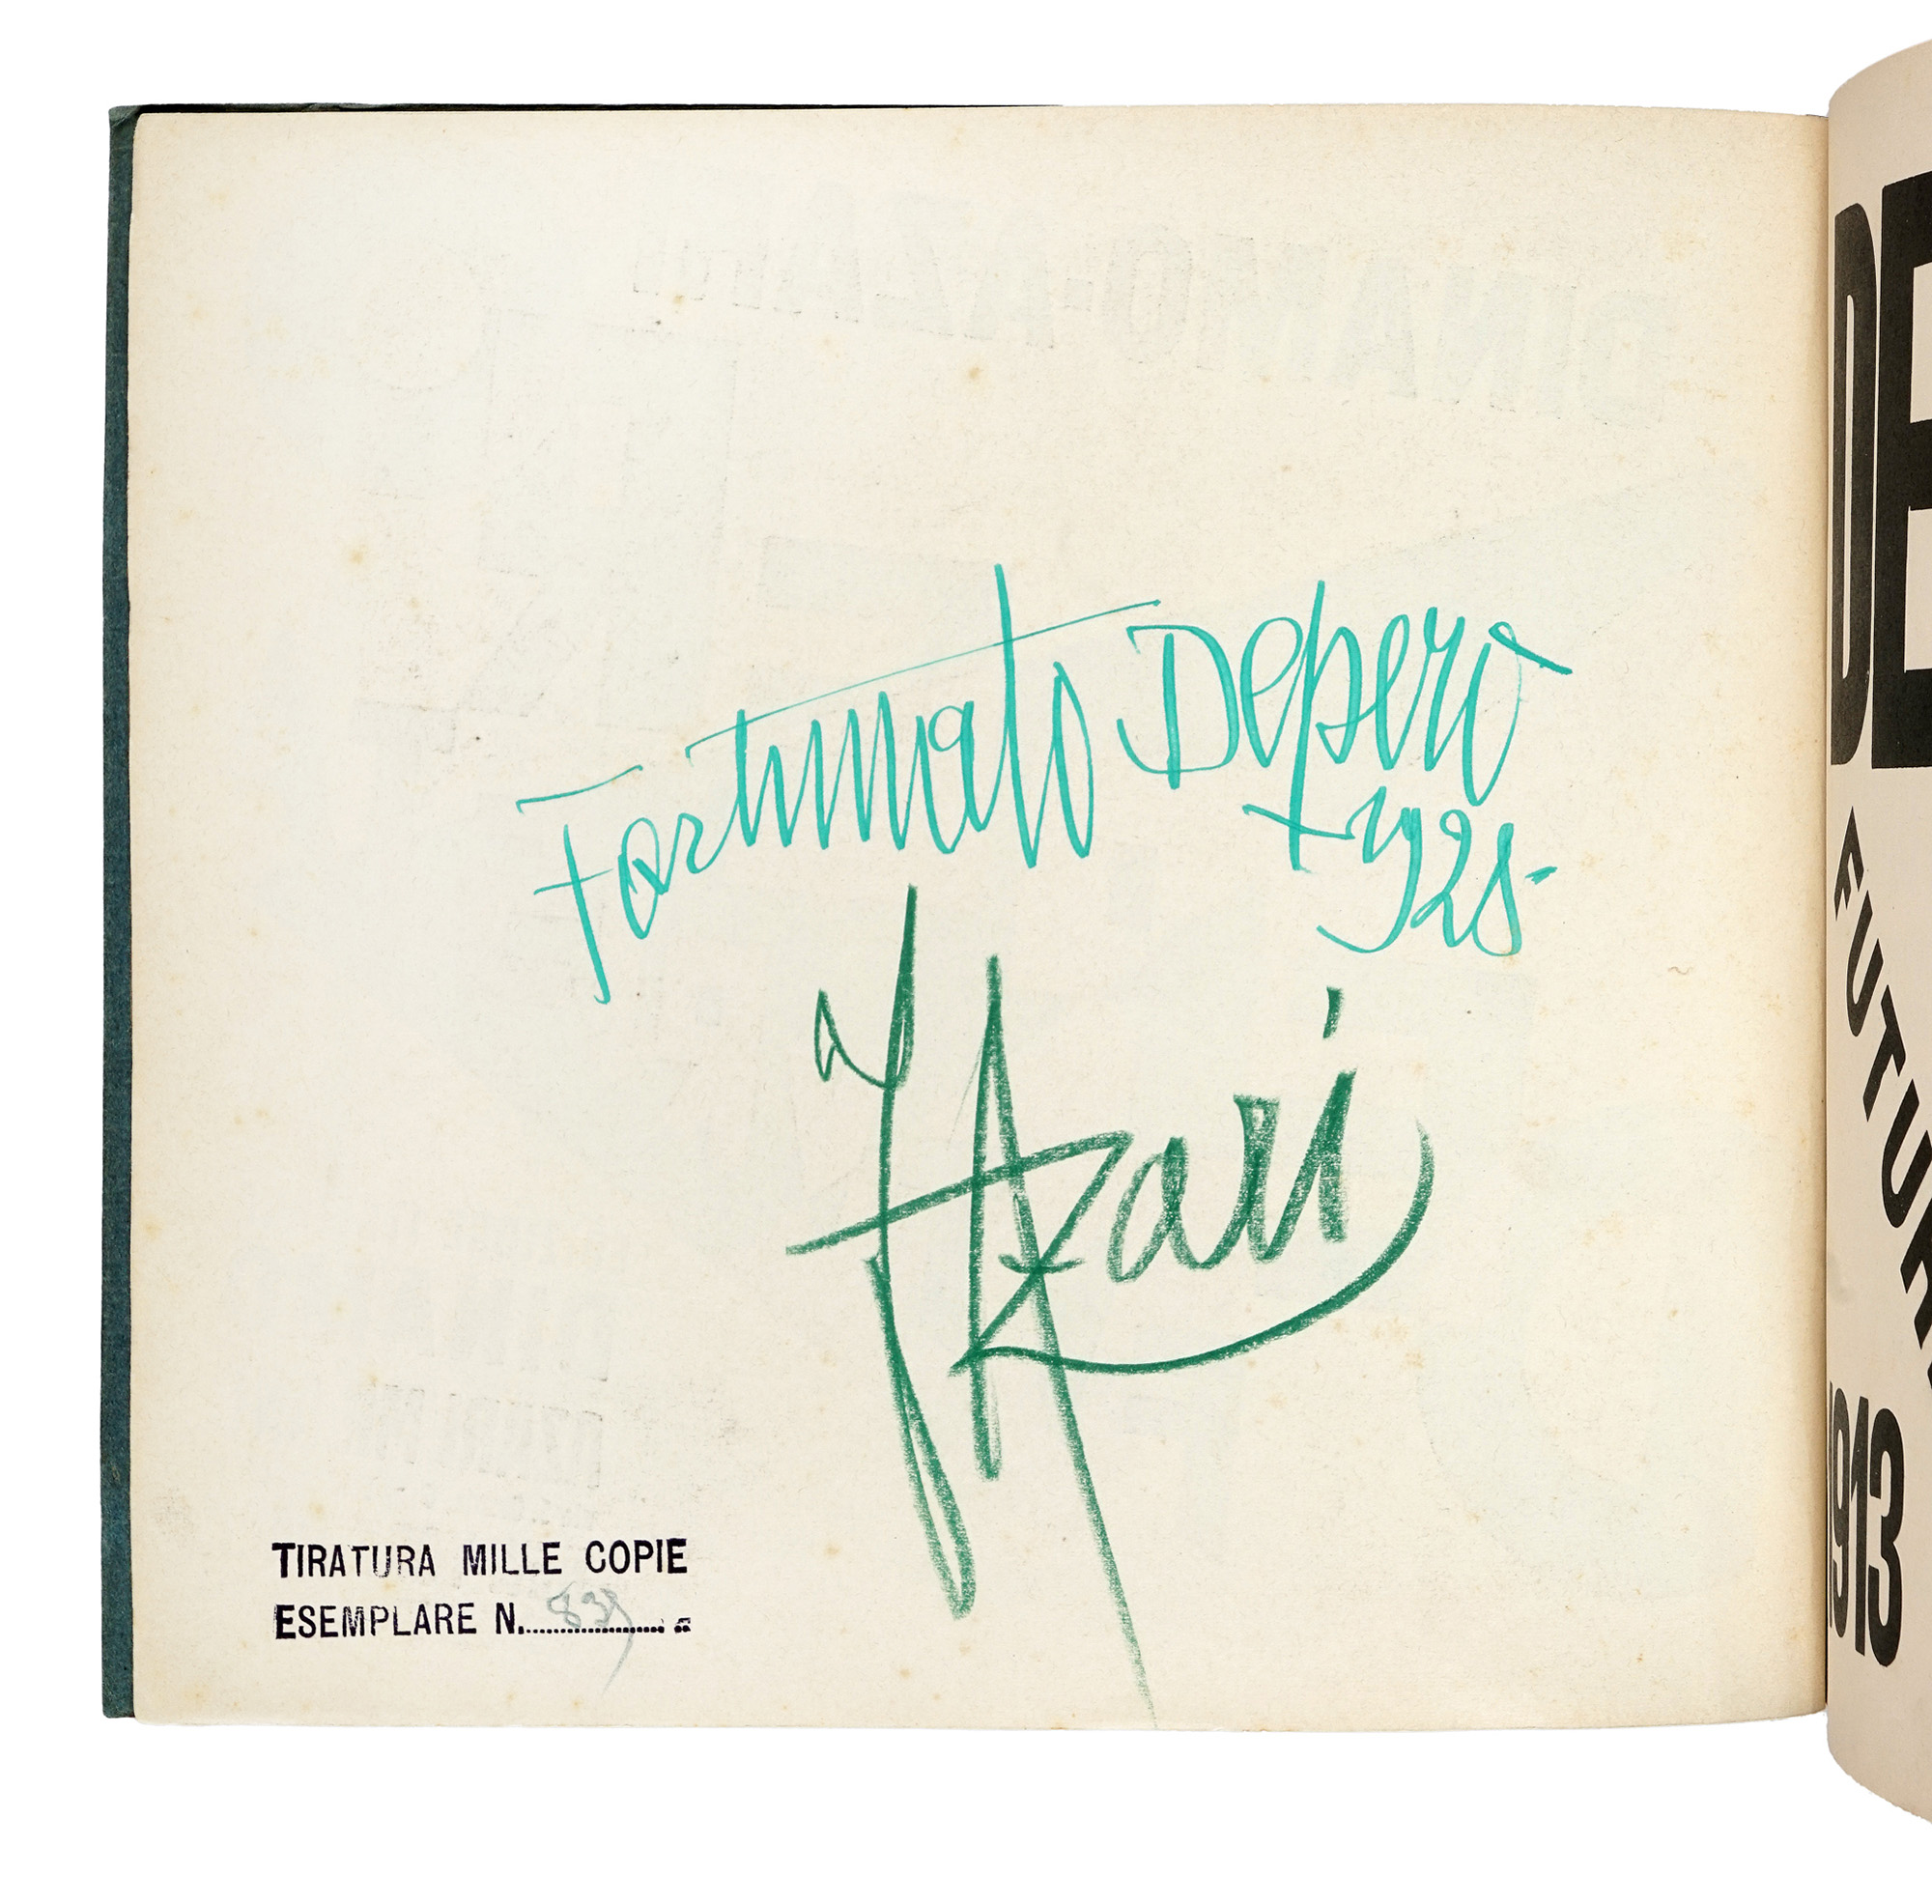 Fortunato Depero
+ 1928
F Azari
TIRATURA MILLE COPIE
ESEMPLARE N. 839
DE
FUTUR
1913